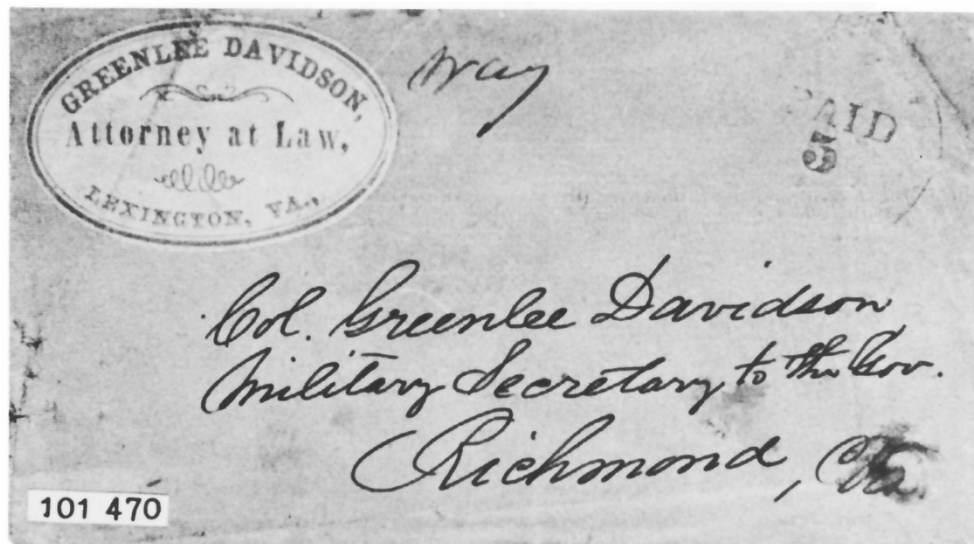 GREENLEE DAVIDSON,
Attorney at Law,
LEXINGTON, VA.,
Way
PAID
5
Col. Greenlee Davidson
Military Secretary to the Gov.
Richmond, Va
101 470